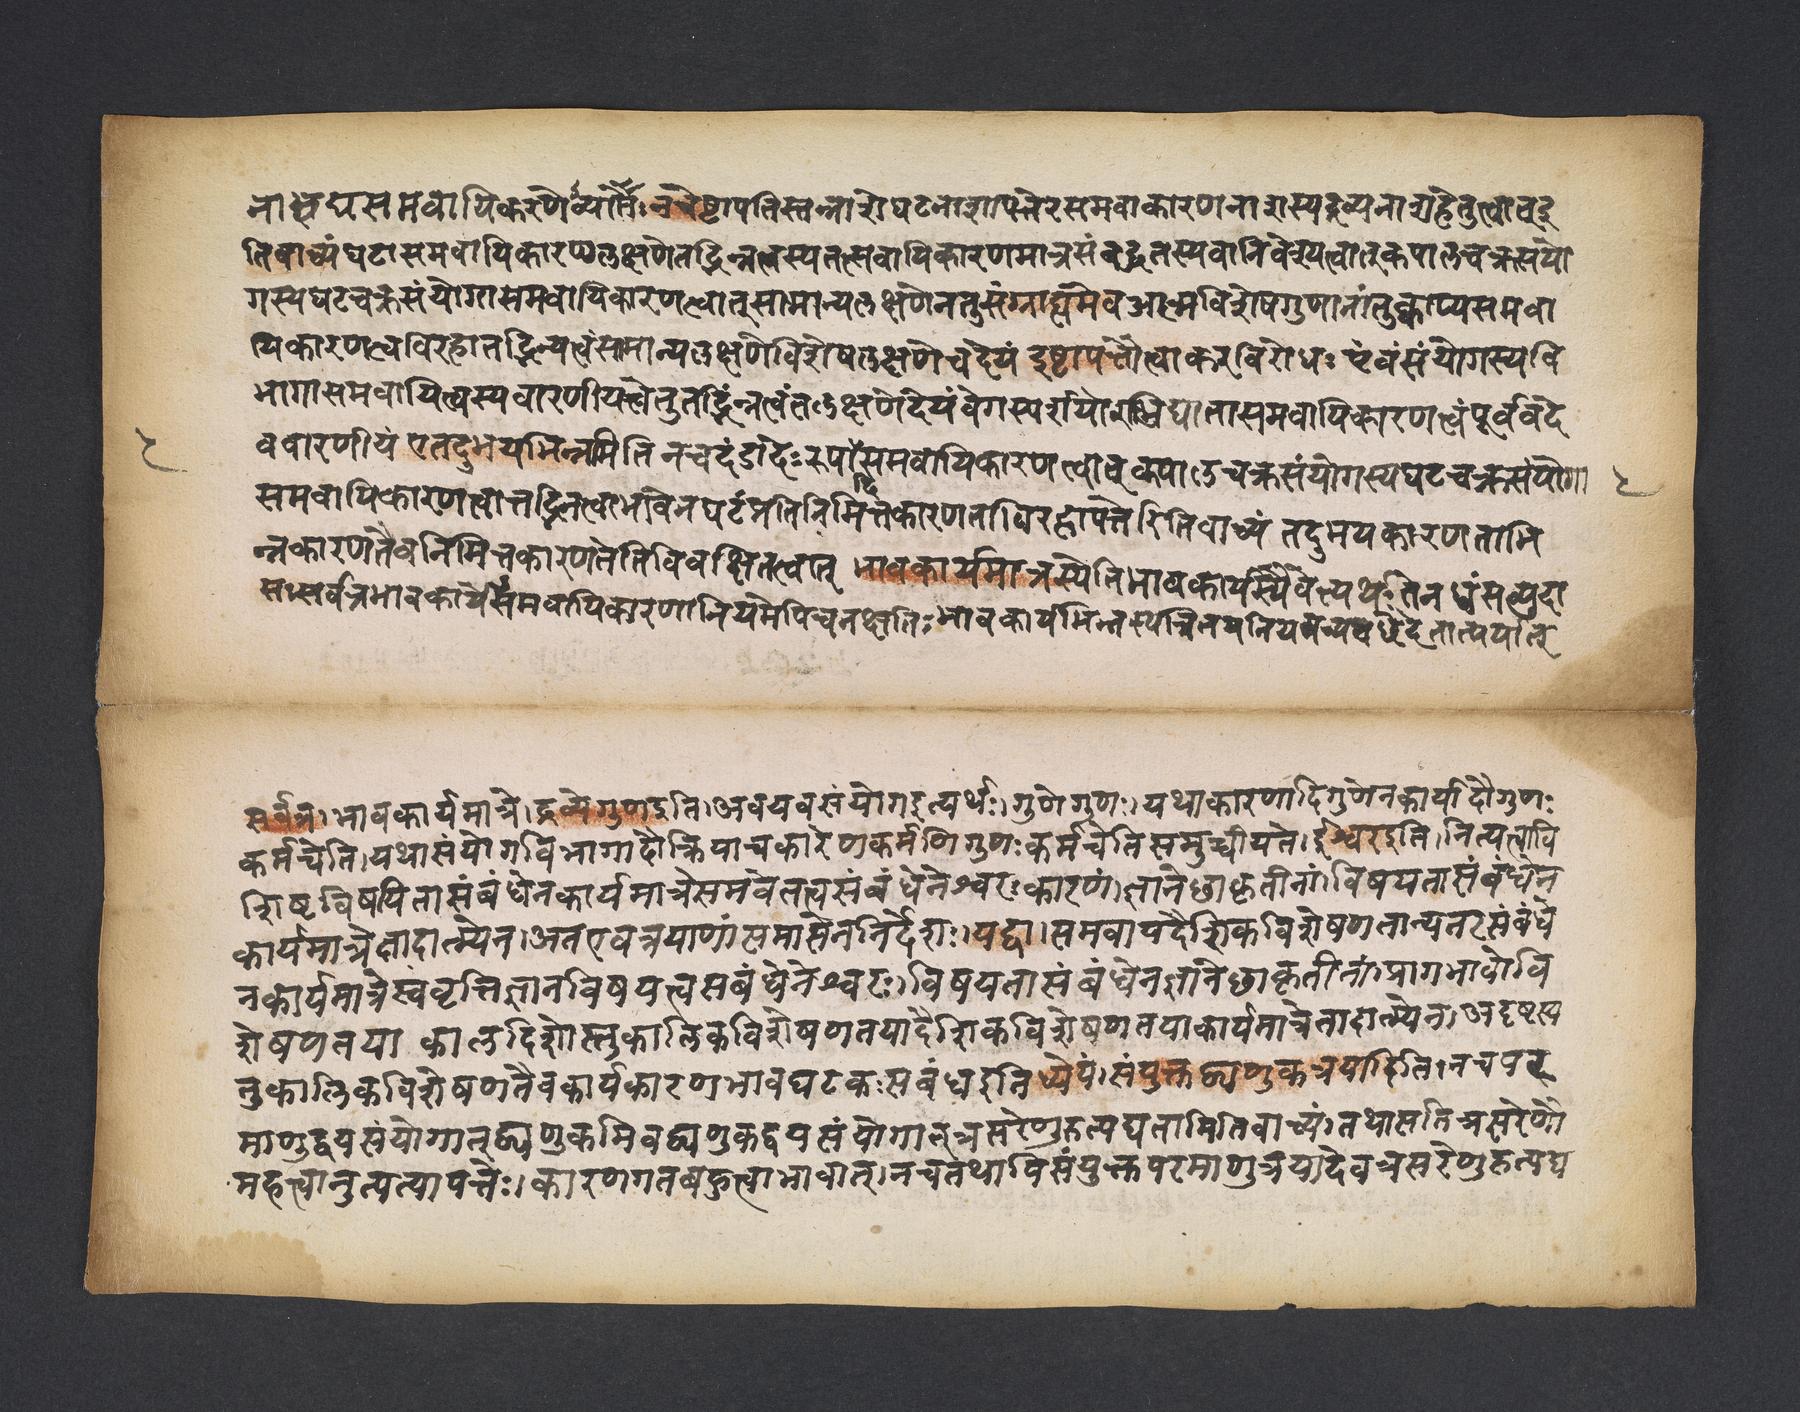 नाश्च घ्रसमवायिकरणेव्याप्तैः नचेष्टापतिस्तन्नाशेघटनाशापत्तेरसमवाकारणनाशस्यद्रव्यनाशहेतुत्वाव्द
तिवाच्यंघटासमवायिकारणलक्षणेतद्भिन्नत्वस्यतत्सवायिकारणमात्रसंबद्धतस्यवानिवेश्यत्वात्कपालचक्रसंयो
गस्यघटचक्रसंयोगासमवायिकारणत्वात्सामान्यलक्षणेनतुसंग्राह्यमेवआत्मविशेषगुणानांतुक्वाप्यसमवा
यिकारणत्वविरहातद्भिन्यत्वंसामान्यलक्षणेविशेषलक्षणेचदेयं इष्टापत्तौत्वाकरविरोधः एवंसंयोगस्यवि
भागासमवायित्वस्यवारणीयत्वेतुतद्भिन्नत्वंतल्लक्षणेदेयंवेगस्पर्शयोरभिघातासमवायिकारणत्वंपूर्ववदे
ववारणीयं एतदुभयभिन्नमिति नचदंडादेः रूपासमवायिकारणत्वाव कपालचक्रसंयोगस्यघटचक्रसंयोगा
समवायिकारणत्वात्तद्भिन्नत्वाभावेनघटंप्रतिनिमित्तकारणताविरहापत्तेरितिवाच्यं तदुभयकारणताभि
न्नकारणतैवनिमित्तकारणतेतिविवक्षितत्वात् भावकार्यमात्रस्येति।भावकार्यस्यैवेत्यर्थः तेन ध्वंसत्युदा
सः।सर्वत्रभावकार्येसमवायिकारणानियमेपिचनक्षतिः भावकार्यभिन्नत्रितयनियमव्यवछेदेतात्पर्यात्
सर्वत्र। भावकार्यमात्रे। द्रव्येगुणइति।अवयवसंयोगइत्यर्थः। गुणेगुणः। यथाकारणादिगुणेनकार्यादौगुणः
कर्मच्चेति।यथासंयोगविभागादौक्रियाचकारेणकर्मणिगुणःकर्मचेतिसमुच्चीयते। ईश्वरइति।नित्यत्वावि
शिष्टविषयितासंबंधेनकार्यमात्रेसमवेतत्वसंबंधेनेश्वरःकारणं। ज्ञानेछाकृतीनां।विषयतासंबंधेन
कार्यमात्रेतादात्म्येन।अतएवत्रयाणांसमासेननिर्देशः। यद्वा। समवायदैशिकविशेषणतान्यतरसंबंधे
नकार्यमात्रेस्ववृत्तिज्ञानविषयत्वसबंधेनेश्वरः। विषयतासंबंधेनज्ञानेछाकृतीनां।प्रागभावोवि
शेषणतया कालदिशोस्तुकालिकविशेषणतयादैशिकविशेषणतयाकार्यमात्रेतादात्म्येन।अदृष्टस्य
तुकालिकविशेषणतैवकार्यकारणभावघटकःसबंधइतिध्येयं।संयुक्तद्व्यणुकत्रयादिति।नचपर
माणुद्वयसंयोगात्द्व्यणुकमिवद्व्यणुकद्वयसंयोगात्त्रसरेणुरुत्पद्यतामितिवाच्यं।तथासतित्रसरेणौ
महत्वानुत्पत्यापत्तेः।कारणगतबहुत्वाभावात्।नचतथापिसंयुक्तपरमाणुत्रयादेवत्रसरेणुरुत्पद्य